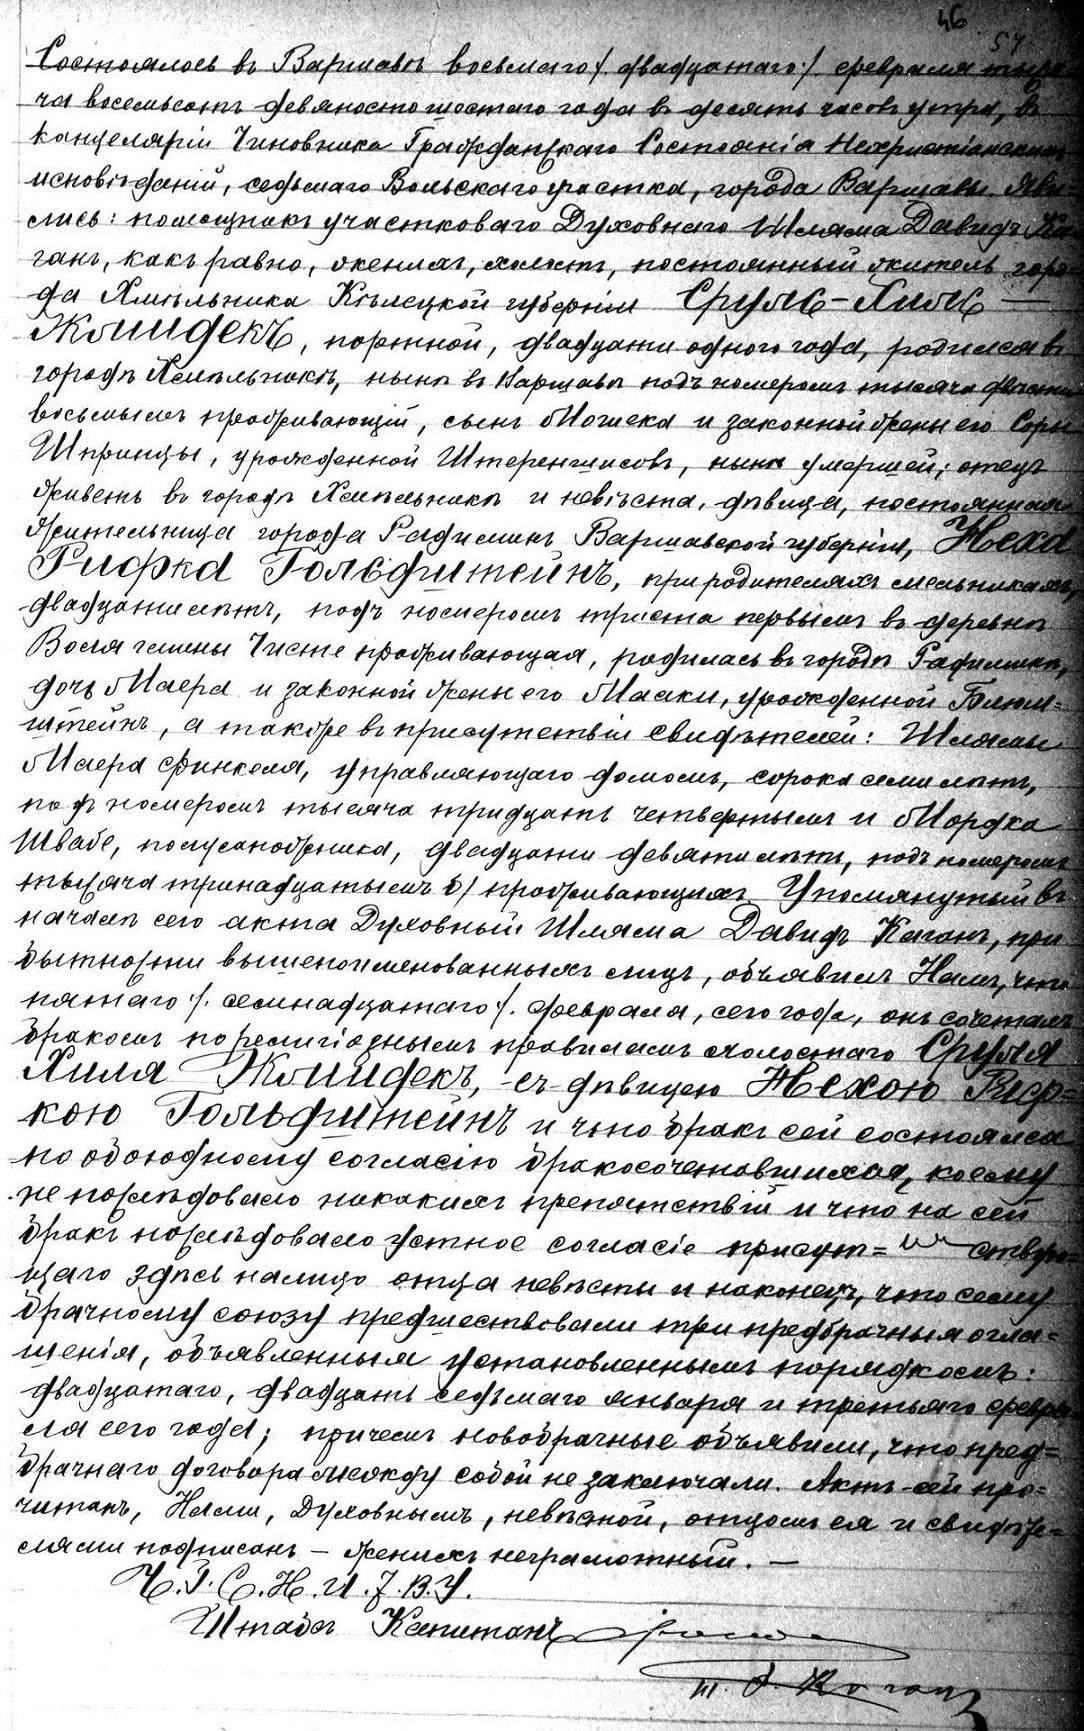 46
57
Состоялось въ Варшавѣ восьмаго /двадцатаго/ февраля тыся
ча восемьсотъ девяносто шестаго года въ десять часовъ утра, въ
канцеляріи Чиновника Гражданскаго Состоянія Нехристіанскихъ
исповѣданій, седьмаго Вольскаго участка, города Варшавы. Яви
лись: помощникъ участковаго Духовнаго Шляма Давидъ Ка
ганъ, какъ равно, женихъ, холостъ, постоянный житель горо
да Хмѣльника Кѣлецкой губерніи Сруль-Хиль
Жолидекъ, портной, двадцати одного года, родился въ
городѣ Хмѣльникѣ, нынѣ въ Варшавѣ подъ номеромъ тысяча двѣсти
восьмымъ проживающій, сынъ Мошека и законной жены его Соры
Шпринцы, урожденной Штеренгисовъ, нынѣ умершей; отецъ
живетъ въ городѣ Хмѣльникѣ и невѣста, дѣвица, постоянная
жительница города Радиминъ Варшавской губерніи, Неха
Рифка Гольфштейнъ, при родителяхъ мельникахъ,
двадцати лѣтъ, подъ номеромъ триста первымъ въ деревнѣ
Воля гмины Чисте проживающая, родилась въ городѣ Радиминѣ,
дочь Маера и законной жены его Маски, урожденной Блюм=
штейнъ, а также въ присутствіи свидѣтелей: Шлямы
Маера Финкеля, управляющаго домомъ, сорока семи лѣтъ,
подъ номеромъ тысяча тридцать четвертымъ и Мордка
Швабе, полусапожника, двадцати девяти лѣтъ, подъ номеромъ
тысяча тринадцатымъ б/ проживающихъ. Упомянутый въ
началѣ сего акта Духовный Шляма Давидъ Каганъ, при
бытности вышепоименованныхъ лицъ, объявилъ Намъ, что
пятаго /. семнадцатаго /. февраля, сего года, онъ сочеталъ
бракомъ по религіознымъ правиламъ холостаго Сруля
Хиля Жолидекъ, съ дѣвицею Нехою Риф=
кою Гольфштейнъ и что бракъ сей состоялся
по обоюдному согласію бракосочетавшихся, коему
не послѣдовало никакихъ препятствій и что на сей
бракъ послѣдовало устное согласіе присут= ствую=
щаго здѣсь налицо отца невѣсты и наконецъ, что сему
брачному союзу предшествовали три предбрачныя огла=
шенія, объявленныя установленнымъ порядкомъ:
двадцатаго, двадцать седьмаго января и третьяго февра
ля сего года; причемъ новобрачные объявили, что пред=
брачнаго договора между собой не заключали. Актъ сей про=
читанъ, Нами, Духовнымъ, невѣстой, отцомъ ея и свидѣте=
лями подписанъ – женихъ неграмотный. –
Ч. Г. С. Н. И. 7. В. У.
Штабсъ Капитанъ
Ш. Д. Каганъ